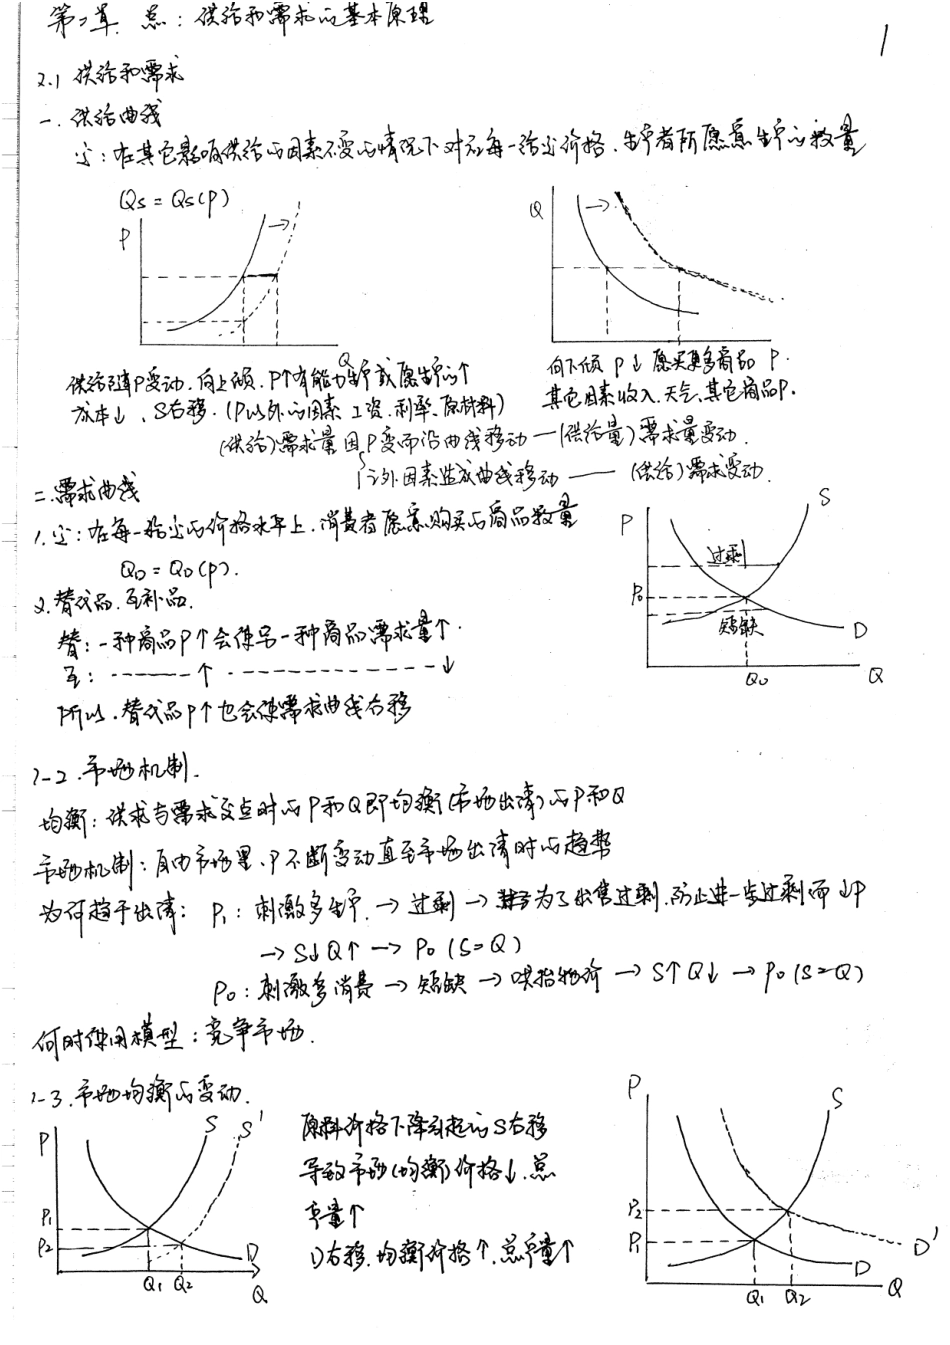 第二章. 总: 供给和需求的基本原理
1
2.1 供给和需求
一. 供给曲线
定: 在其它影响供给的因素不变的情况下对应每一给定价格, 生产者所愿意生产的数量
Qs = Qs(P)
P
Q
Q
P.
供给随P变动. 向上倾. P↑有能力生产或愿生产的↑
向下倾 P↓ 愿买更多商品
成本↓, S右移. (P以外的因素 工资. 利率. 原材料)
其它因素收入. 天气. 其它商品P.
(供给)需求量因P变而沿曲线移动 — (供给量)需求量变动.
之外因素造成曲线移动 —— (供给)需求变动.
二. 需求曲线
1. 定: 在每一给定的价格水平上, 消费者愿意购买的商品数量
QD = QD(P).
2. 替代品. 互补品.
替: 一种商品P↑会使另一种商品需求量↑.
互: ------↑ -------------↓
所以. 替代品P↑也会使需求曲线右移
P
S
过剩
P0
短缺
D
Q0
Q
2-2. 市场机制.
均衡: 供求与需求交点时的P和Q即均衡(市场出清)的P和Q
市场机制: 自由市场里, P不断变动直至市场出清时的趋势
为何趋于出清: P1: 刺激多生产. → 过剩 → 为了出售过剩, 防止进一步过剩而↓P
→ S↓ Q↑ → P0 (S=Q)
P0: 刺激多消费 → 短缺 → 哄抬物价 → S↑ Q↓ → P0 (S=Q)
何时使用模型: 竞争市场.
2-3. 市场均衡的变动.
P
S
S'
P1
P2
D
Q1 Q2
Q
原料价格下降引起的S右移
导致市场(均衡)价格↓, 总
产量↑
D右移. 均衡价格↑. 总产量↑
P
S
P2
P1
D'
D
Q1 Q2
Q